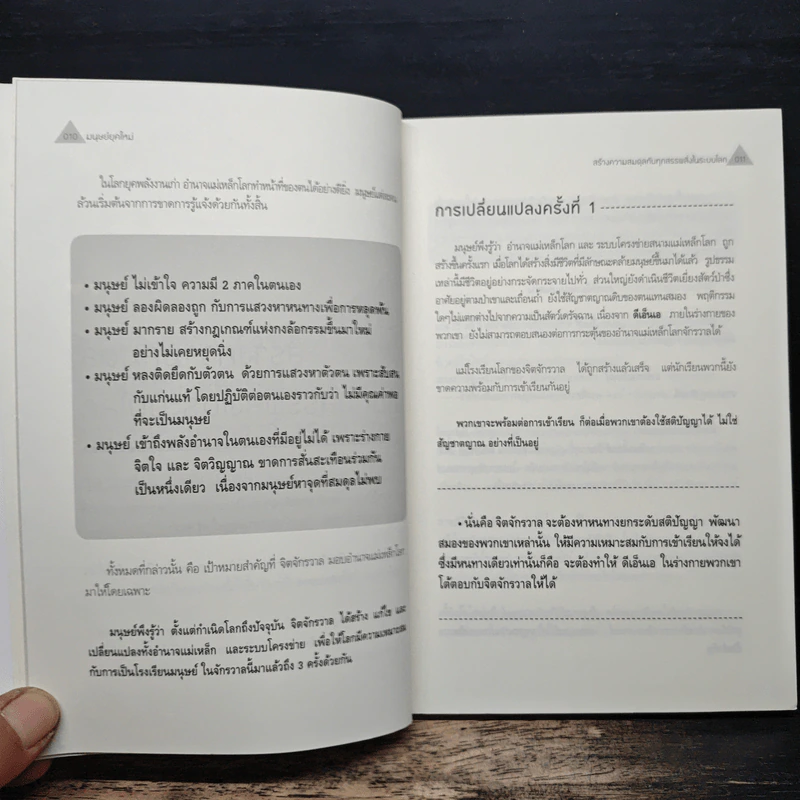 010 มนุษย์ยุคใหม่
ในโลกยุคพลังงานเก่า อำนาจแม่เหล็กโลกทำหน้าที่ของตนได้อย่างดียิ่ง มนุษย์แต่ละคน
ล้วนเริ่มต้นจากการขาดการรู้แจ้งด้วยกันทั้งสิ้น
• มนุษย์ ไม่เข้าใจ ความมี 2 ภาคในตนเอง
• มนุษย์ ลองผิดลองถูก กับการแสวงหาหนทางเพื่อการหลุดพ้น
• มนุษย์ มากราย สร้างกฎเกณฑ์แห่งกงล้อกรรมขึ้นมาใหม่
อย่างไม่เคยหยุดนิ่ง
• มนุษย์ หลงติดยึดกับตัวตน ด้วยการแสวงหาตัวตน เพราะสับสน
กับแก่นแท้ โดยปฏิบัติต่อตนเองราวกับว่า ไม่มีคุณค่าพอ
ที่จะเป็นมนุษย์
• มนุษย์ เข้าถึงพลังอำนาจในตนเองที่มีอยู่ไม่ได้ เพราะร่างกาย
จิตใจ และ จิตวิญญาณ ขาดการสั่นสะเทือนร่วมกัน
เป็นหนึ่งเดียว เนื่องจากมนุษย์หาจุดที่สมดุลไม่พบ
ทั้งหมดที่กล่าวนั้น คือ เป้าหมายสำคัญที่ จิตจักรวาล มอบอำนาจแม่เหล็กโลก
มาให้โดยเฉพาะ
มนุษย์พึงรู้ว่า ตั้งแต่กำเนิดโลกถึงปัจจุบัน จิตจักรวาล ได้สร้าง แก้ไข และ
เปลี่ยนแปลงทั้งอำนาจแม่เหล็ก และระบบโครงข่าย เพื่อให้โลกมีความเหมาะสม
กับการเป็นโรงเรียนมนุษย์ ในจักรวาลนี้มาแล้วถึง 3 ครั้งด้วยกัน
สร้างความสมดุลกับทุกสรรพสิ่งในระบบโลก 011
การเปลี่ยนแปลงครั้งที่ 1
มนุษย์พึงรู้ว่า อำนาจแม่เหล็กโลก และ ระบบโครงข่ายสนามแม่เหล็กโลก ถูก
สร้างขึ้นครั้งแรก เมื่อโลกได้สร้างสิ่งมีชีวิตที่มีลักษณะคล้ายมนุษย์ขึ้นมาได้แล้ว รูปธรรม
เหล่านี้มีชีวิตอยู่อย่างกระจัดกระจายไปทั่ว ส่วนใหญ่ยังดำเนินชีวิตเยี่ยงสัตว์ป่าซึ่ง
อาศัยอยู่ตามป่าเขาและเถื่อนถ้ำ ยังใช้สัญชาตญาณดิบของตนแทนสมอง พฤติกรรม
ใดๆไม่แตกต่างไปจากความเป็นสัตว์เดรัจฉาน เนื่องจาก ดีเอ็นเอ ภายในร่างกายของ
พวกเขา ยังไม่สามารถตอบสนองต่อการกระตุ้นของอำนาจแม่เหล็กโลกจักรวาลได้
แม้โรงเรียนโลกของจิตจักรวาล ได้ถูกสร้างแล้วเสร็จ แต่นักเรียนพวกนี้ยัง
ขาดความพร้อมกับการเข้าเรียนกันอยู่
พวกเขาจะพร้อมต่อการเข้าเรียน ก็ต่อเมื่อพวกเขาต้องใช้สติปัญญาได้ ไม่ใช่
สัญชาตญาณ อย่างที่เป็นอยู่
• นั่นคือ จิตจักรวาล จะต้องหาหนทางยกระดับสติปัญญา พัฒนา
สมองของพวกเขาเหล่านั้น ให้มีความเหมาะสมกับการเข้าเรียนให้จงได้
ซึ่งมีหนทางเดียวเท่านั้นก็คือ จะต้องทำให้ ดีเอ็นเอ ในร่างกายพวกเขา
โต้ตอบกับจิตจักรวาลให้ได้